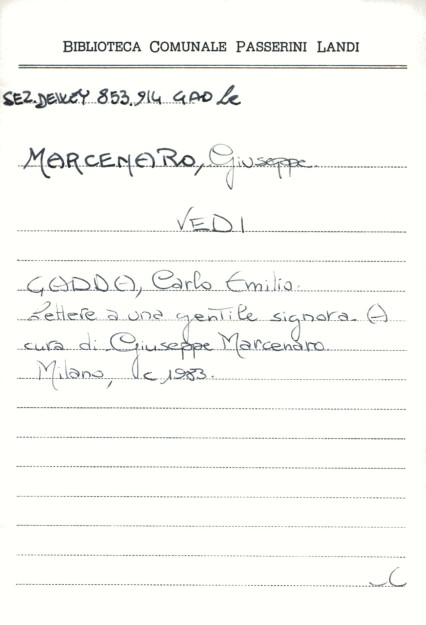 BIBLIOTECA COMUNALE PASSERINI LANDI
SEZ. DEWEY 853.914 GAD Le
MARCENARO, Giuseppe.
VEDI
GADDA, Carlo Emilio.
Lettere a una gentile signora. A
cura di Giuseppe Marcenaro.
Milano, c 1983.